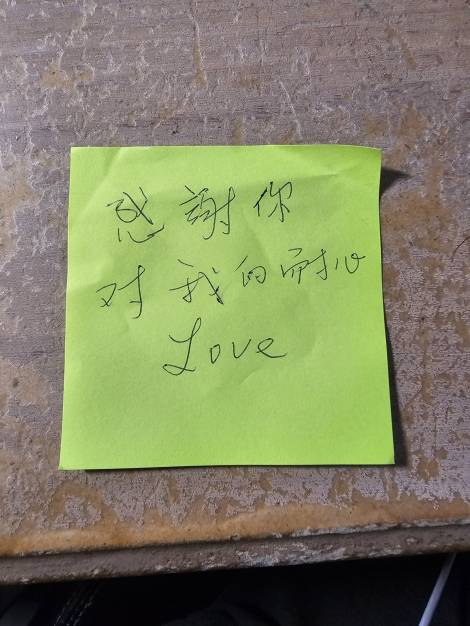 感謝你
对我的耐心
Love